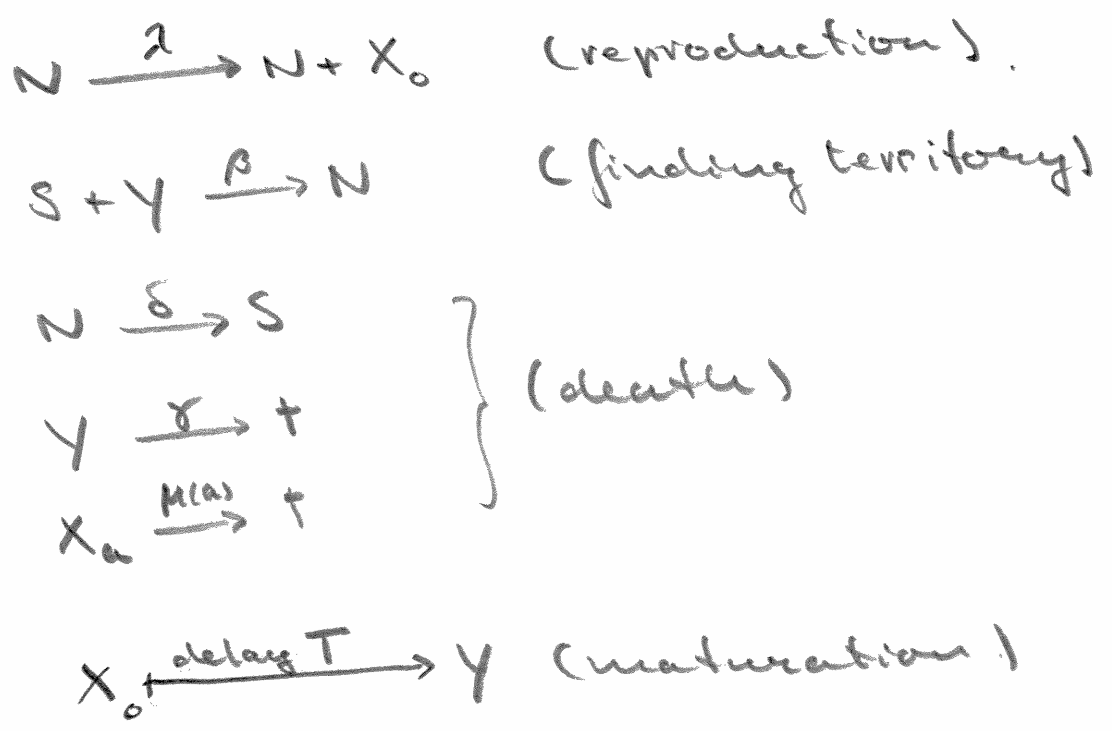 N λ→ N + X₀ (reproduction).
S + Y β→ N (finding territory)
N δ→ S
Y γ→ †
(death)
Xₐ μ(a)→ †
X₀ delay T→ Y (maturation)